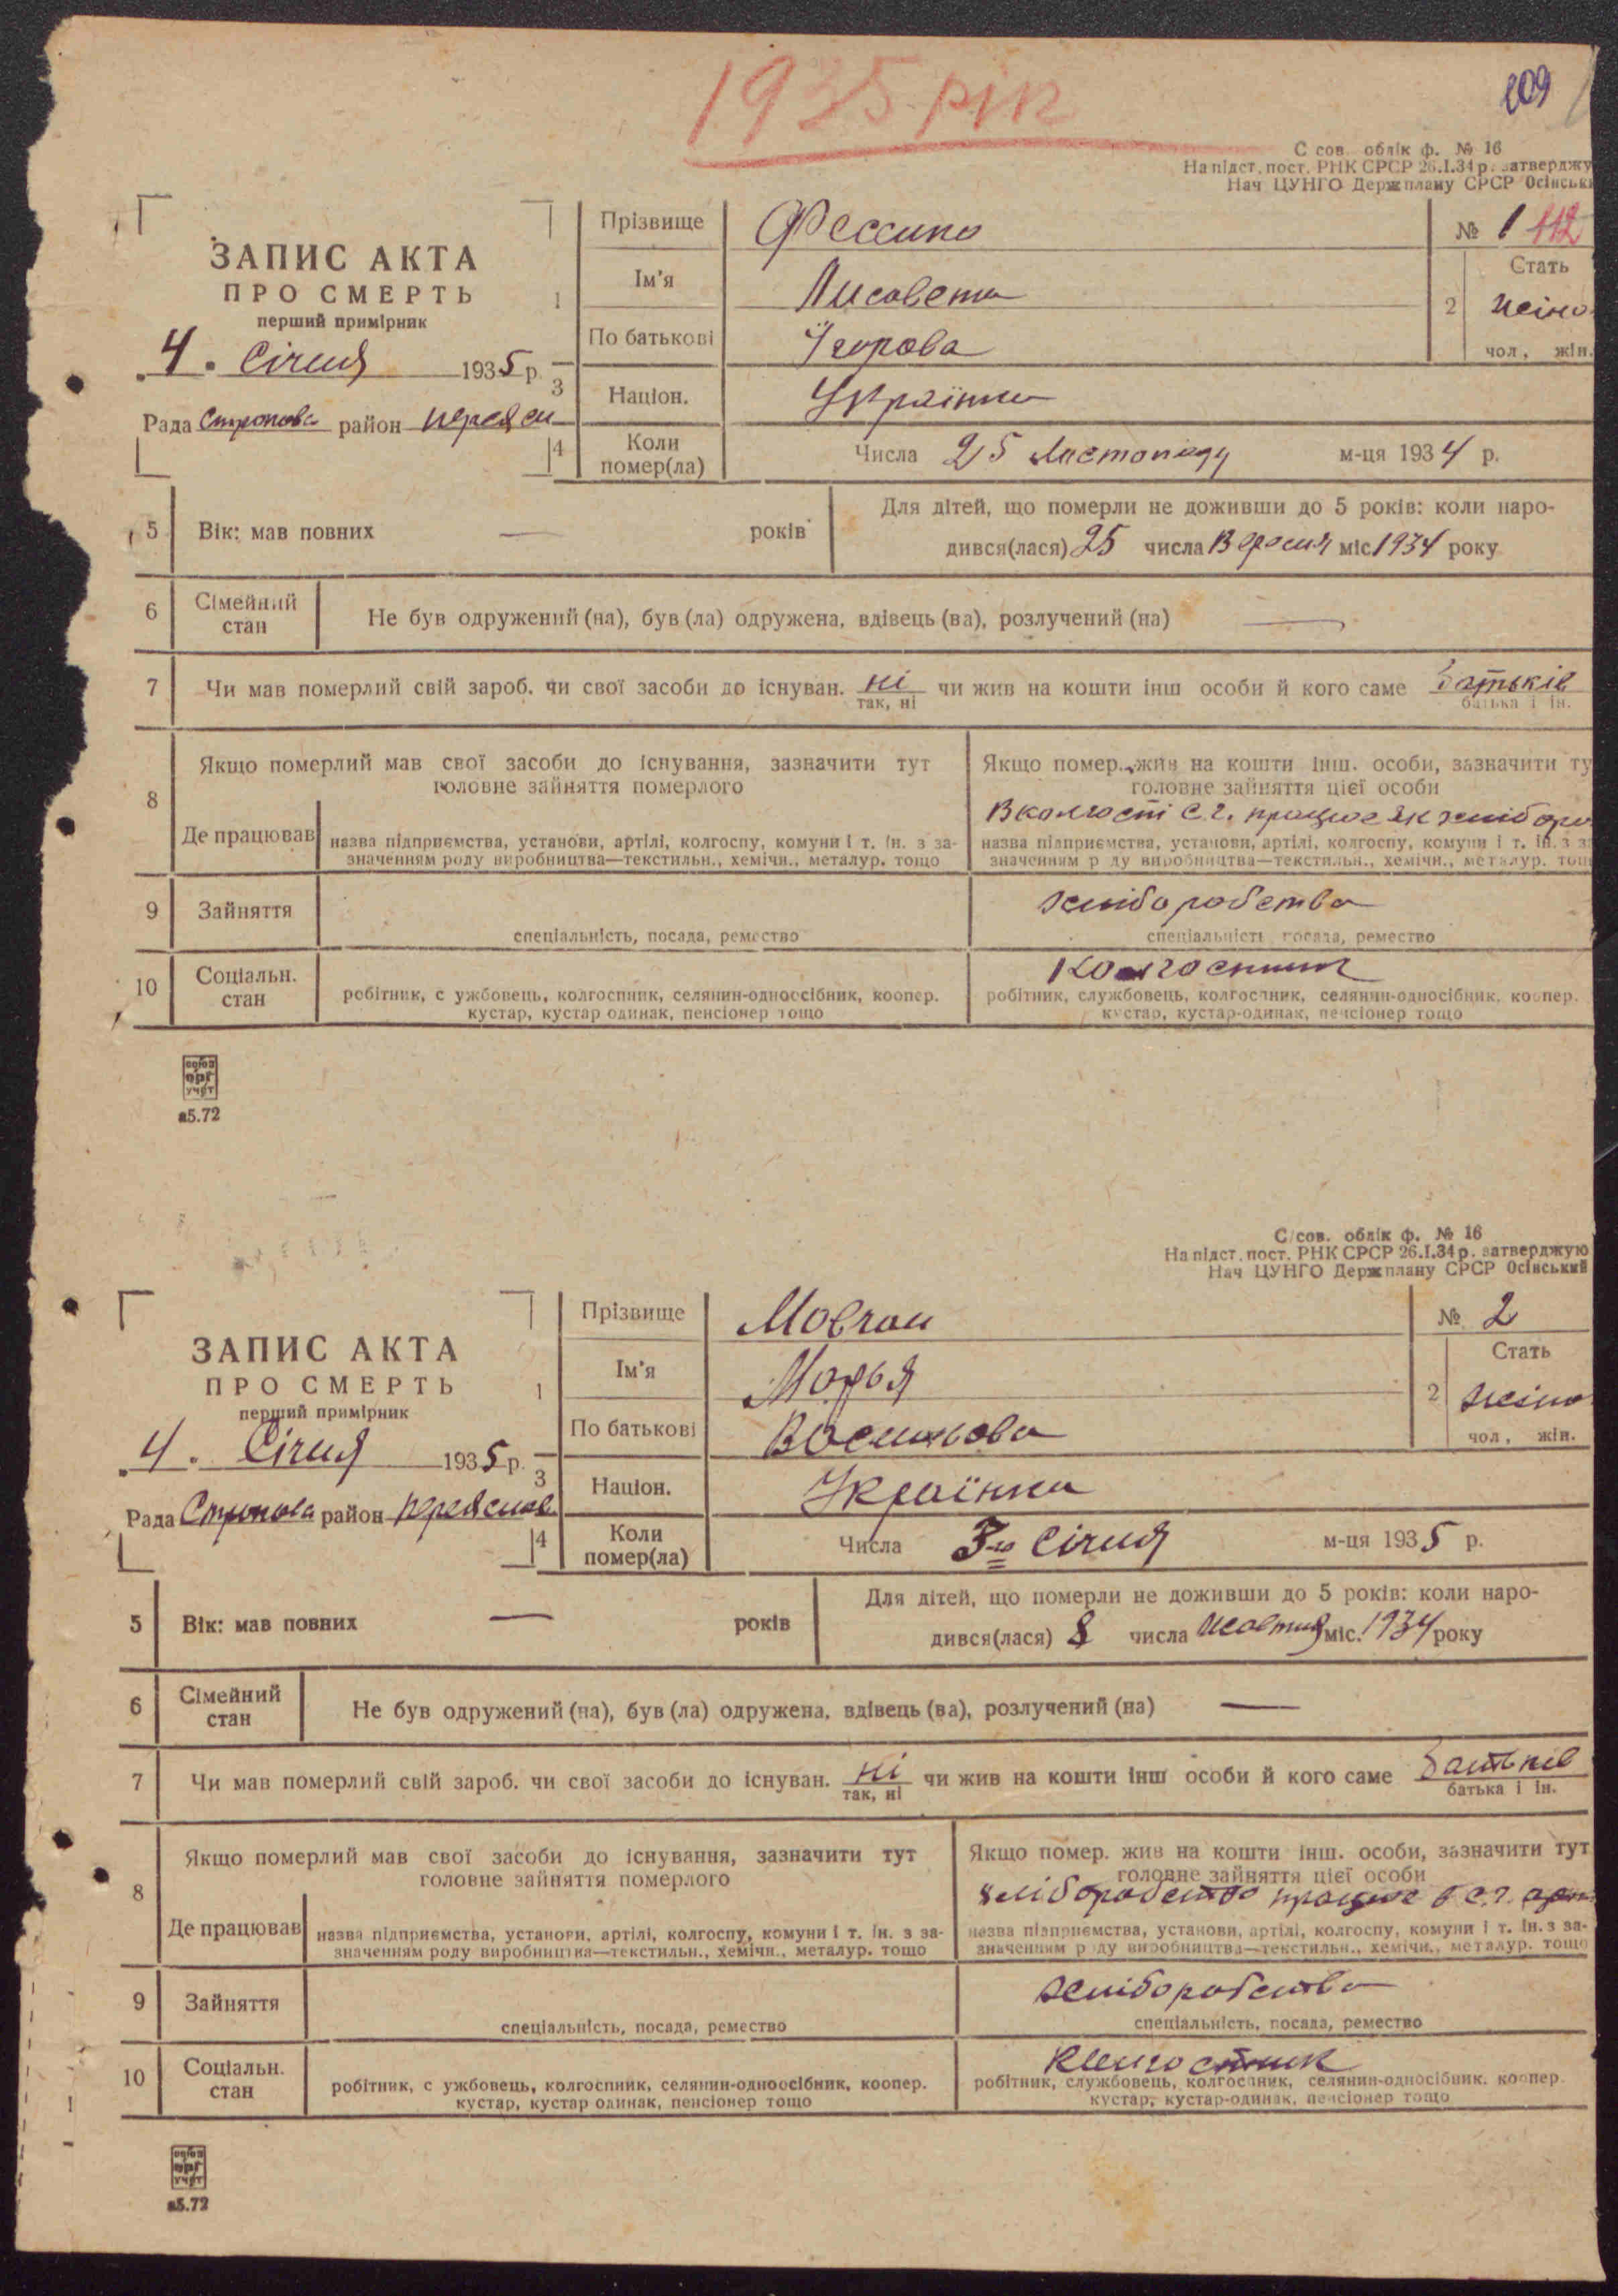 1935 рік
209
С сов. облік ф. № 16
На підст. пост. РНК СРСР 26.І.34 р. затверджу
Нач ЦУНГО Держплану СРСР Осінськи
ЗАПИС АКТА
ПРО СМЕРТЬ
перший примірник
4. Січня 1935 р.
Рада район
1 Прізвище
Ім'я Лисавета
По батькові Ігорова
№ 1 112
2 Стать жіно
чол, жін.
3 Націон. Українка
4 Коли помер(ла) Числа 25 Листопаду м-ця 1934 р.
5 Вік: мав повних — років
Для дітей, що померли не доживши до 5 років: коли наро-
дився(лася) 25 числа Вересня міс 1934 року
6 Сімейний стан Не був одружений (на), був (ла) одружена, вдівець (ва), розлучений (на) —
7 Чи мав померлий свій зароб. чи свої засоби до існуван. ні чи жив на кошти інш особи й кого саме батьків
так, ні
батька і ін.
8 Якщо померлий мав свої засоби до існування, зазначити тут
головне зайняття померлого
Де працював
назва підприємства, установи, артілі, колгоспу, комуни і т. ін. з за-
значенням роду виробництва—текстильн., хемічн., металур. тощо
Якщо помер. жив на кошти інш. особи, зазначити ту
головне зайняття цієї особи
В колгоспі с.г. працює як хлібороб
назва підприємства, установи, артілі, колгоспу, комуни і т. ін. з з
значенням р ду виробництва—текстильн., хемічн., металур. тощ
9 Зайняття
спеціальність, посада, ремество
хліборобство
спеціальність посада, ремество
10 Соціальн. стан
робітник, с ужбовець, колгоспник, селянин-одноосібник, коопер.
кустар, кустар одинак, пенсіонер тощо
Колгоспник
робітник, службовець, колгоспник, селянин-односібник, коопер.
кустар, кустар-одинак, пенсіонер тощо
союз
орг
учет
а5.72
С/сов. облік ф. № 16
На підст. пост. РНК СРСР 26.І.34 р. затверджую
Нач ЦУНГО Держплану СРСР Осінський
ЗАПИС АКТА
ПРО СМЕРТЬ
перший примірник
4. Січня 1935 р.
Рада район Переяслав
1 Прізвище Мовчан
Ім'я Марья
По батькові Васильова
№ 2
2 Стать жіно
чол, жін.
3 Націон. Українка
4 Коли помер(ла) Числа 3-го Січня м-ця 1935 р.
5 Вік: мав повних — років
Для дітей, що померли не доживши до 5 років: коли наро-
дився(лася) 8 числа Жовтня міс. 1934 року
6 Сімейний стан Не був одружений (на), був (ла) одружена, вдівець (ва), розлучений (на) —
7 Чи мав померлий свій зароб. чи свої засоби до існуван. ні чи жив на кошти інш особи й кого саме батьків
так, ні
батька і ін.
8 Якщо померлий мав свої засоби до існування, зазначити тут
головне зайняття померлого
Де працював
назва підприємства, установи, артілі, колгоспу, комуни і т. ін. з за-
значенням роду виробництва—текстильн., хемічн., металур. тощо
Якщо помер. жив на кошти інш. особи, зазначити тут
головне зайняття цієї особи
хліборобство працює в с.г. арт
назва підприємства, установи, артілі, колгоспу, комуни і т. ін. з за-
значенням р ду виробництва—текстильн., хемічн., металур. тощо
9 Зайняття
спеціальність, посада, ремество
хліборобство
спеціальність, посада, ремество
10 Соціальн. стан
робітник, с ужбовець, колгоспник, селянин-одноосібник, коопер.
кустар, кустар одинак, пенсіонер тощо
Колгоспник
робітник, службовець, колгоспник, селянин-односібник. коопер.
кустар, кустар-одинак, пенсіонер тощо
союз
орг
учет
а5.72